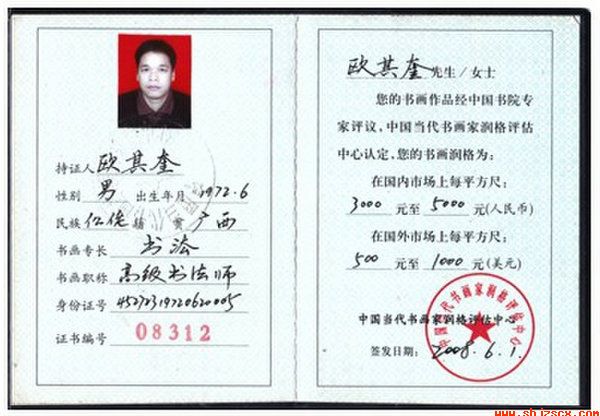 持证人 欧其奎
性别 男 出生年月 1972.6
民族 仫佬 籍贯 广西
书画专长 书法
书画职称 高级书法师
身份证号 452723197206200005
证书编号 08312
欧其奎 先生/女士
您的书画作品经中国书院专
家评议,中国当代书画家润格评估
中心认定,您的书画润格为:
在国内市场上每平方尺:
3000 元至 5000 元(人民币)
在国外市场上每平方尺:
500 元至 1000 元(美元)
中国当代书画家润格评估中心
中国当代书画家润格评估中心
签发日期: 2008.6.1.
www.shjzscx.com